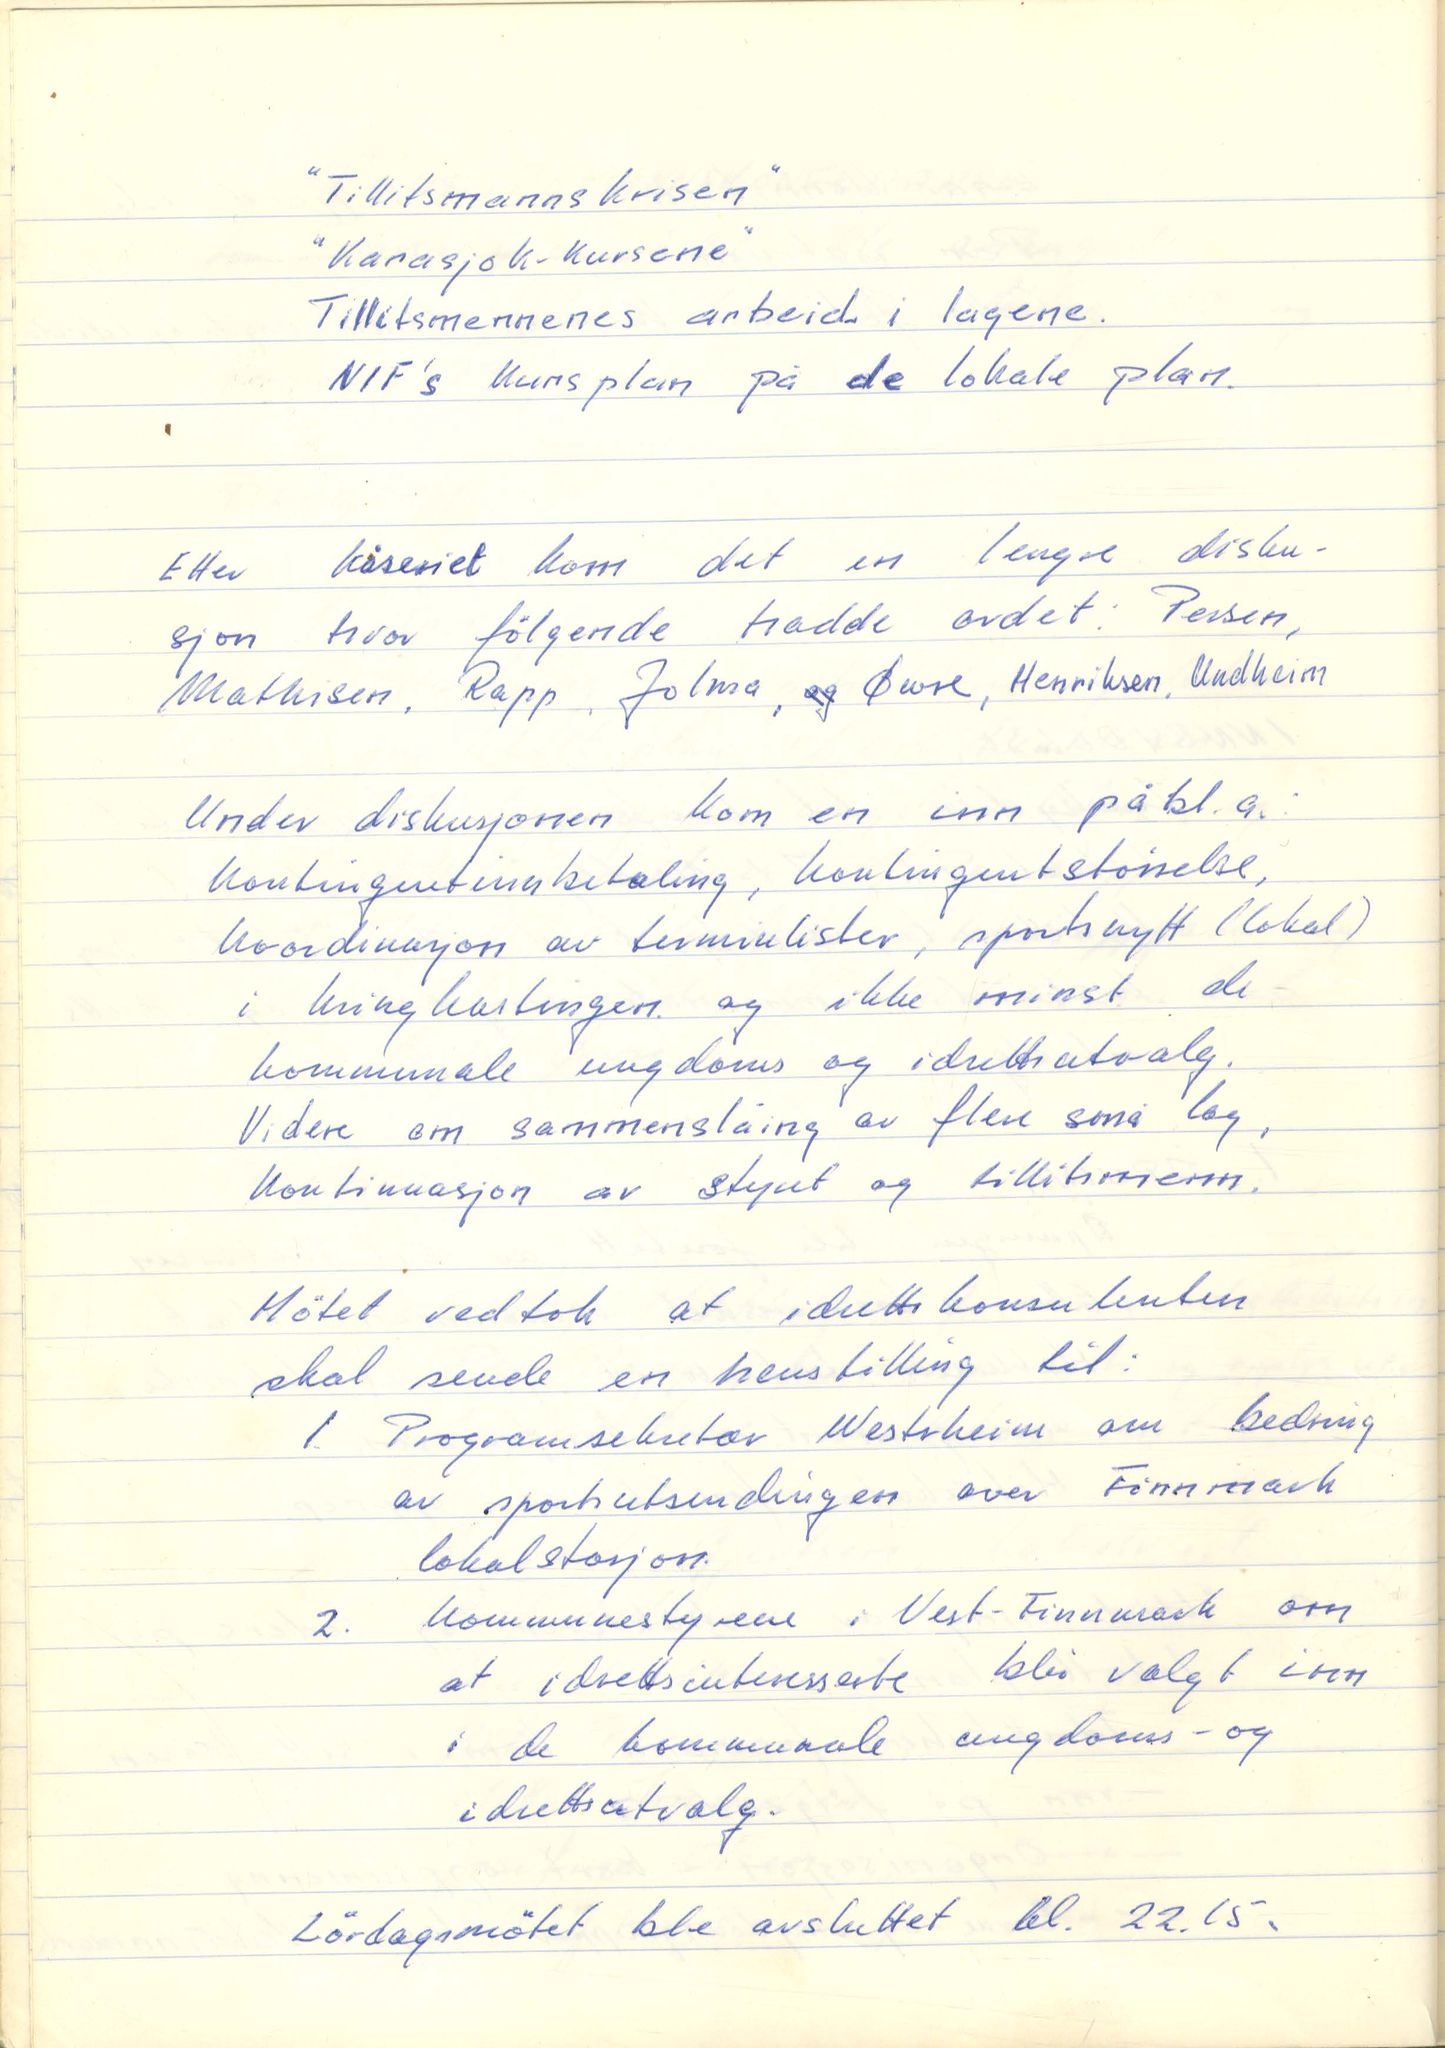 "Tillitsmannskrisen"
"Karasjok-kursene"
Tillitsmennenes arbeid i lagene.
NIF's kursplan på de lokale plan.
Etter kåseriet kom det en lengre disku-
sjon hvor følgende hadde ordet: Persen,
Mathisen, Rapp, Jolma, og Øwre, Henriksen, Undheim
Under diskusjonen kom en inn på bl.a.:
Kontingentinnbetaling, kontingentstörrelse,
koordinasjon av terminlister, sportsnytt (lokal)
i kringkastingen og ikke minst de
kommunale ungdoms og idrettsutvalg.
Videre om sammenslåing av flere små lag,
Kontinuasjon av styret og tillitsmenn.
Mötet vedtok at idrettskonsulenten
skal sende en henstilling til:
1. Programsekretær Westrheim om bedring
av sportsutsendingen over Finnmark
lokalstasjon.
2. Kommunestyrene i Vest-Finnmark om
at idrettsinteresserte blir valgt inn
i de kommunale ungdoms- og
idrettsutvalg.
Lördagsmötet ble avsluttet kl. 22.15.